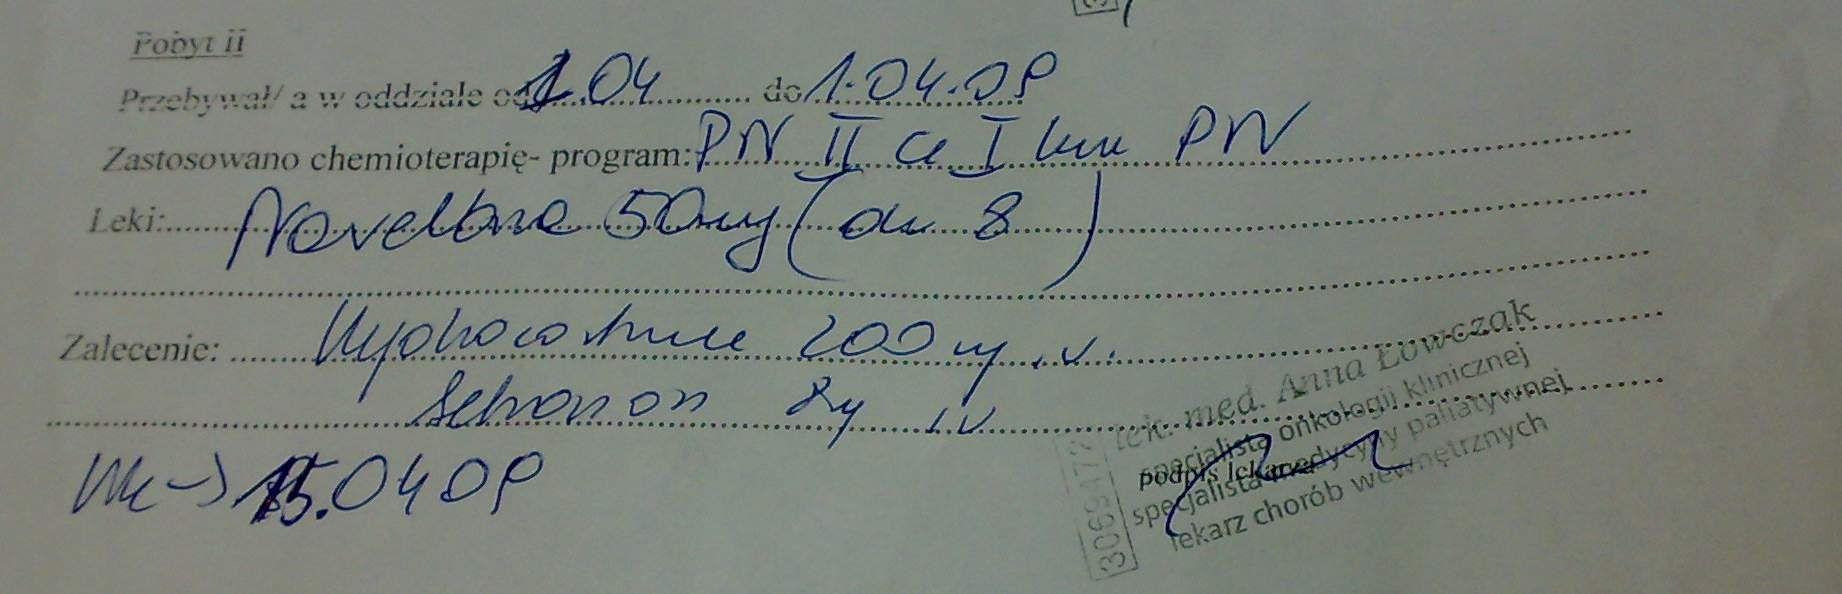 Pobyt II
Przebywał/ a w oddziale od 1.04 do 1.04.09
Zastosowano chemioterapię- program: PN II c I PN
Leki: Navelbine 50mg (dn 8)
Zalecenie: Hydrocortisone 200 mg i.v.
Setronon 8mg i.v
15.04 09
lek. med. Anna Łowczak
specjalista onkologii klinicznej
podpis lekarza
specjalista medycyny paliatywnej
lekarz chorób wewnętrznych